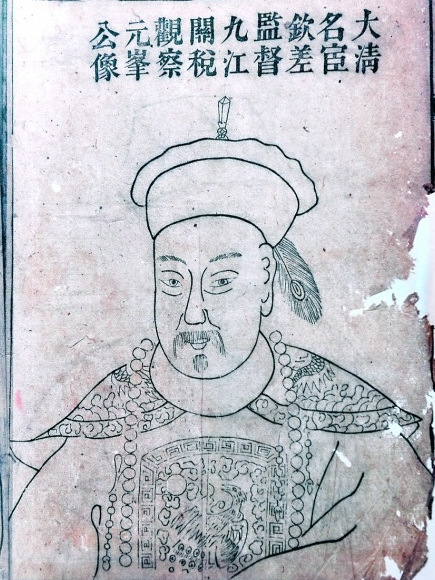 大清
名宦
欽差
監督
九江
關稅
觀察
元峯
公像